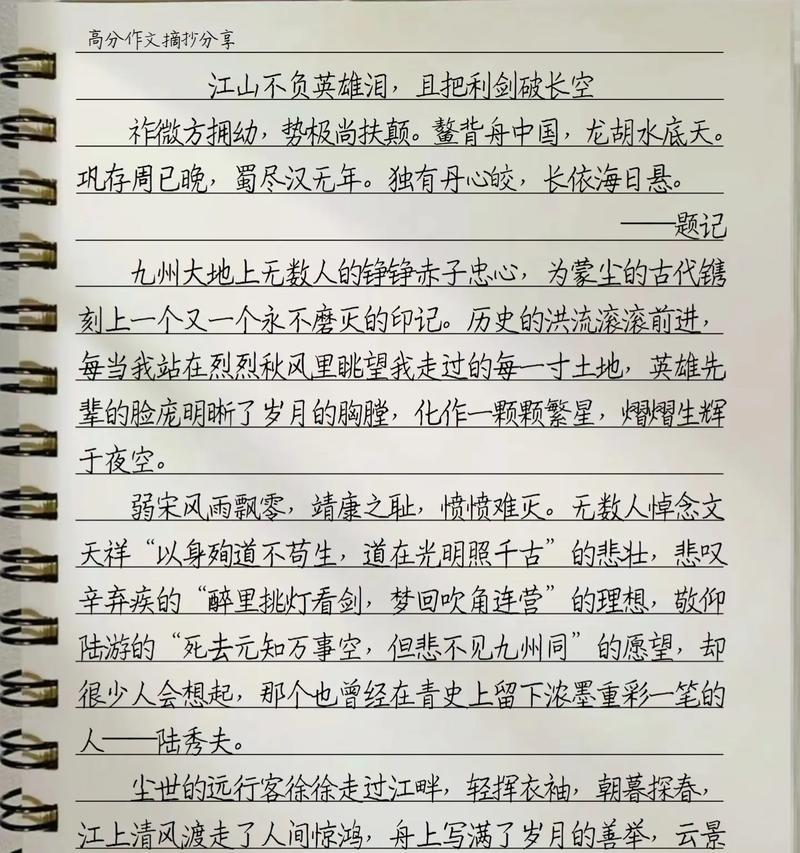 高分作文摘抄分享
江山不负英雄泪，且把利剑破长空
祚微方拥幼，势极尚扶颠。鳌背舟中国，龙胡水底天。
巩存周已晚，蜀尽汉无年。独有丹心皎，长依海日悬。
——题记
九州大地上无数人的铮铮赤子忠心，为蒙尘的古代镌
刻上一个又一个永不磨灭的印记。历史的洪流滚滚前进，
每当我站在烈烈秋风里眺望我走过的每一寸土地，英雄先
辈的脸庞明晰了岁月的胸膛，化作一颗颗繁星，熠熠生辉
于夜空。
弱宋风雨飘零，靖康之耻，愤愤难灭。无数人悼念文
天祥“以身殉道不苟生，道在光明照千古”的悲壮，悲叹
辛弃疾的“醉里挑灯看剑，梦回吹角连营”的理想，敬仰
陆游的“死去元知万事空，但悲不见九州同”的愿望，却
很少人会想起，那个也曾经在青史上留下浓墨重彩一笔的
人——陆秀夫。
尘世的远行客徐徐走过江畔，轻挥衣袖，朝暮探春，
江上清风渡走了人间惊鸿，舟上写满了岁月的善举，云景